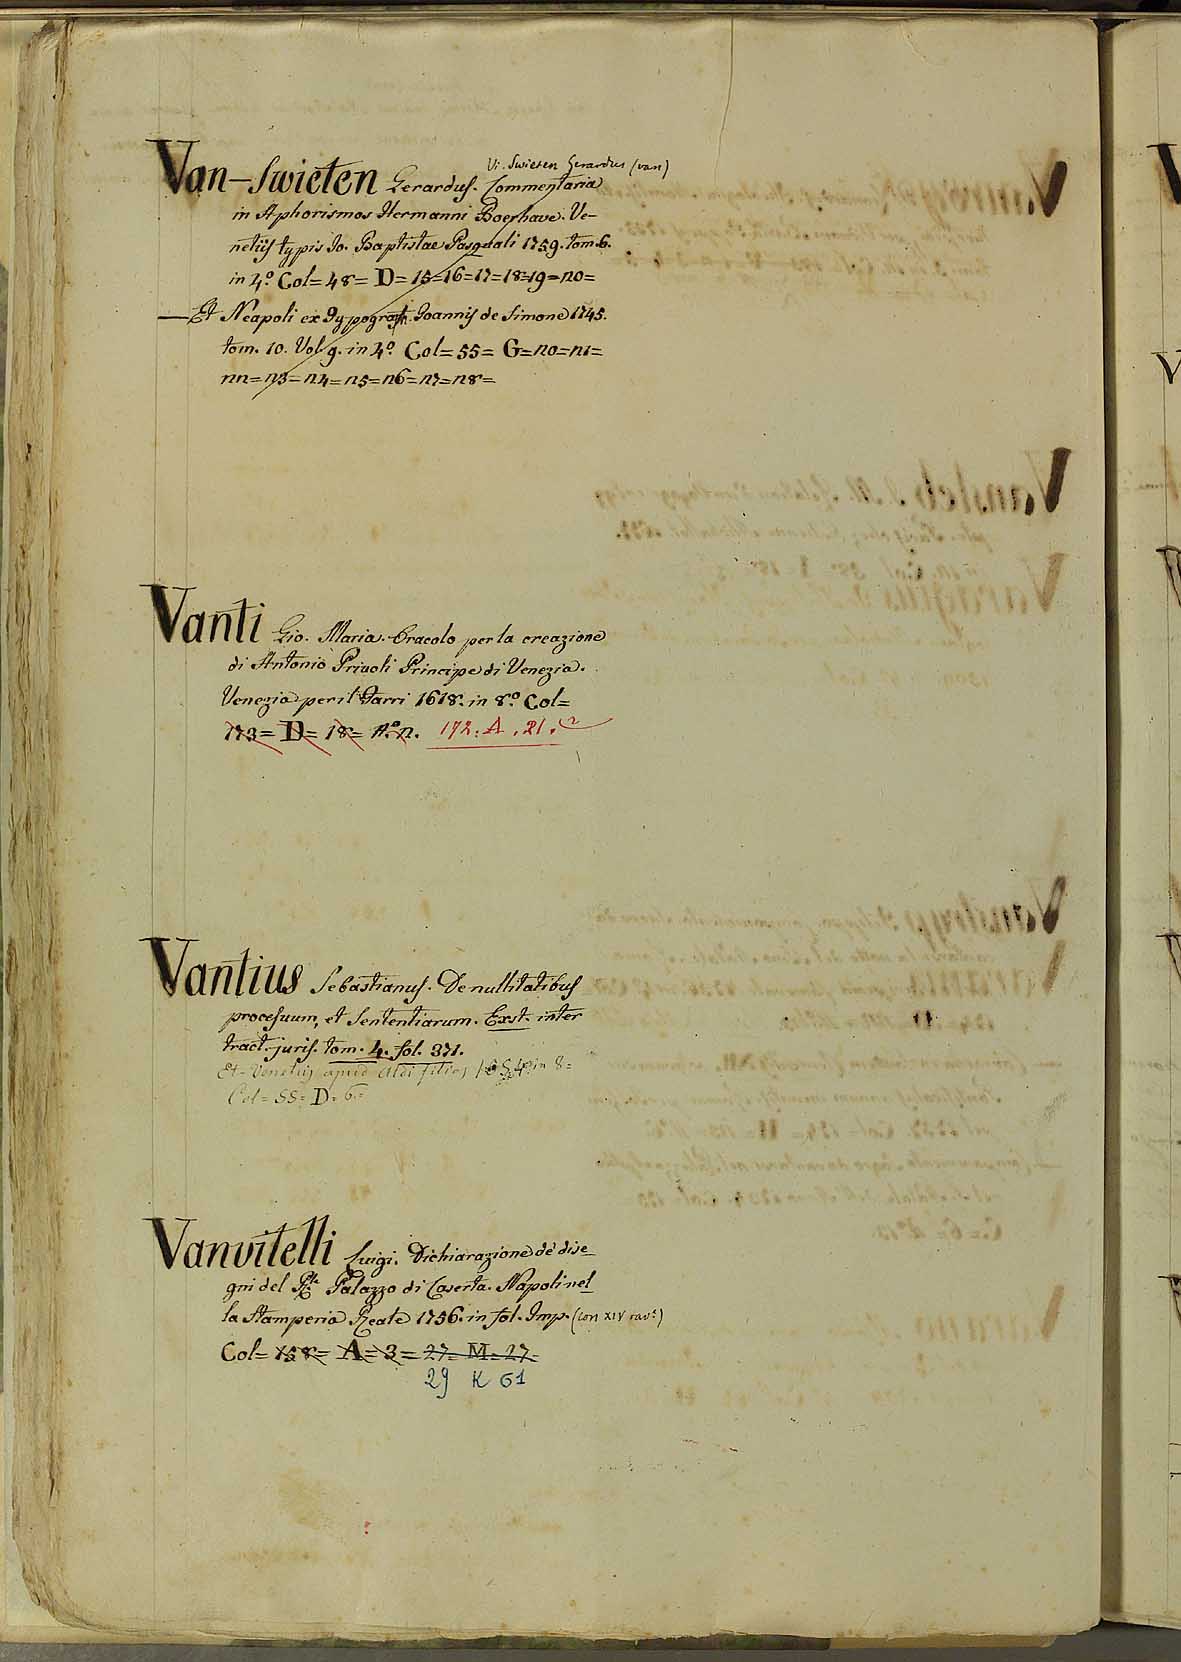 Vi. Swieten Gerardus (van)
Van-Swieten Gerardus. Commentaria
in Aphorismos Hermanni Boerhave. Ve-
netiis typis Jo. Baptistae Pasquali 1759. tom. 6.
in 4.º Col= 48= D= 15=16=17=18=19=20=
— Et Neapoli ex Typograph. Joannis de Simone 1745.
tom. 10. Vol 9. in 4.º Col= 55= G=20=21=
22=23=24=25=26=27=28=
Vanti Gio. Maria. Oracolo per la creazione
di Antonio Priuoli Principe di Venezia.
Venezia per il Sarri 1618. in 8.º Col=
173= D= 18= N.º 2. 172. A. 21. 2
Vantius Sebastianus. De nullitatibus
processuum, et Sententiarum. Exst. inter
tract. juris. tom. 4. fol. 371.
Et Venetiis apud Aldi filios 1554 in 8=
Col= 55= D= 6=
Vanvitelli Luigi. Dichiarazione de dise-
gni del Rle Palazzo di Caserta. Napoli nel
la Stamperia Reale 1756. in fol. Imp. (con XIV tav.e)
Col= 158= A= 3= 27= M= 27=
29 K 61